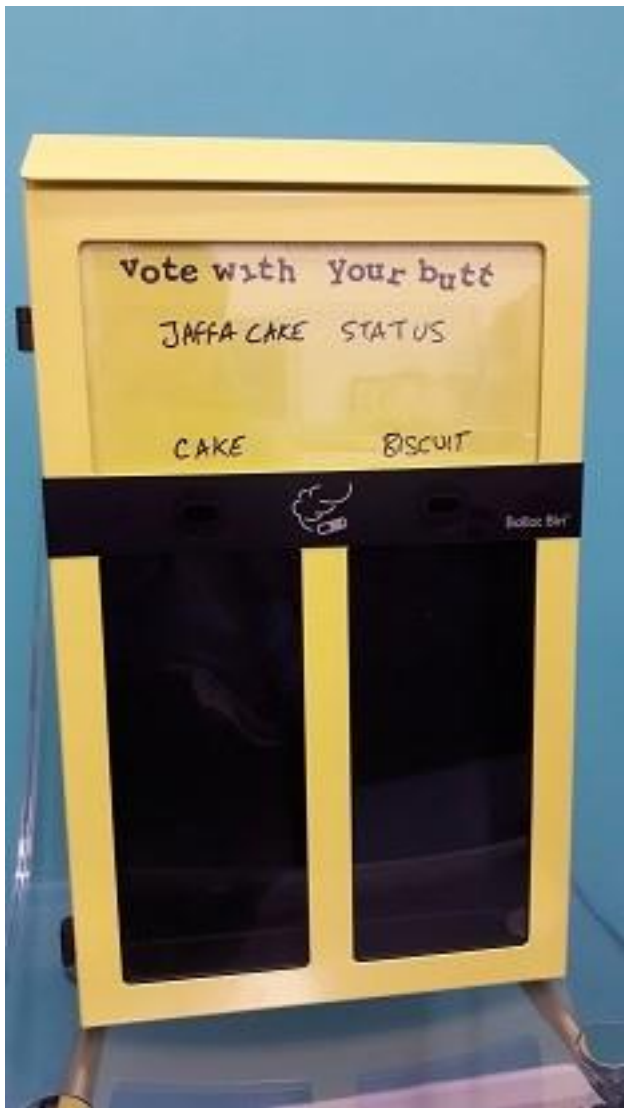 Vote with your butt
JAFFA CAKE STATUS
CAKE BISCUIT
Ballot Bin